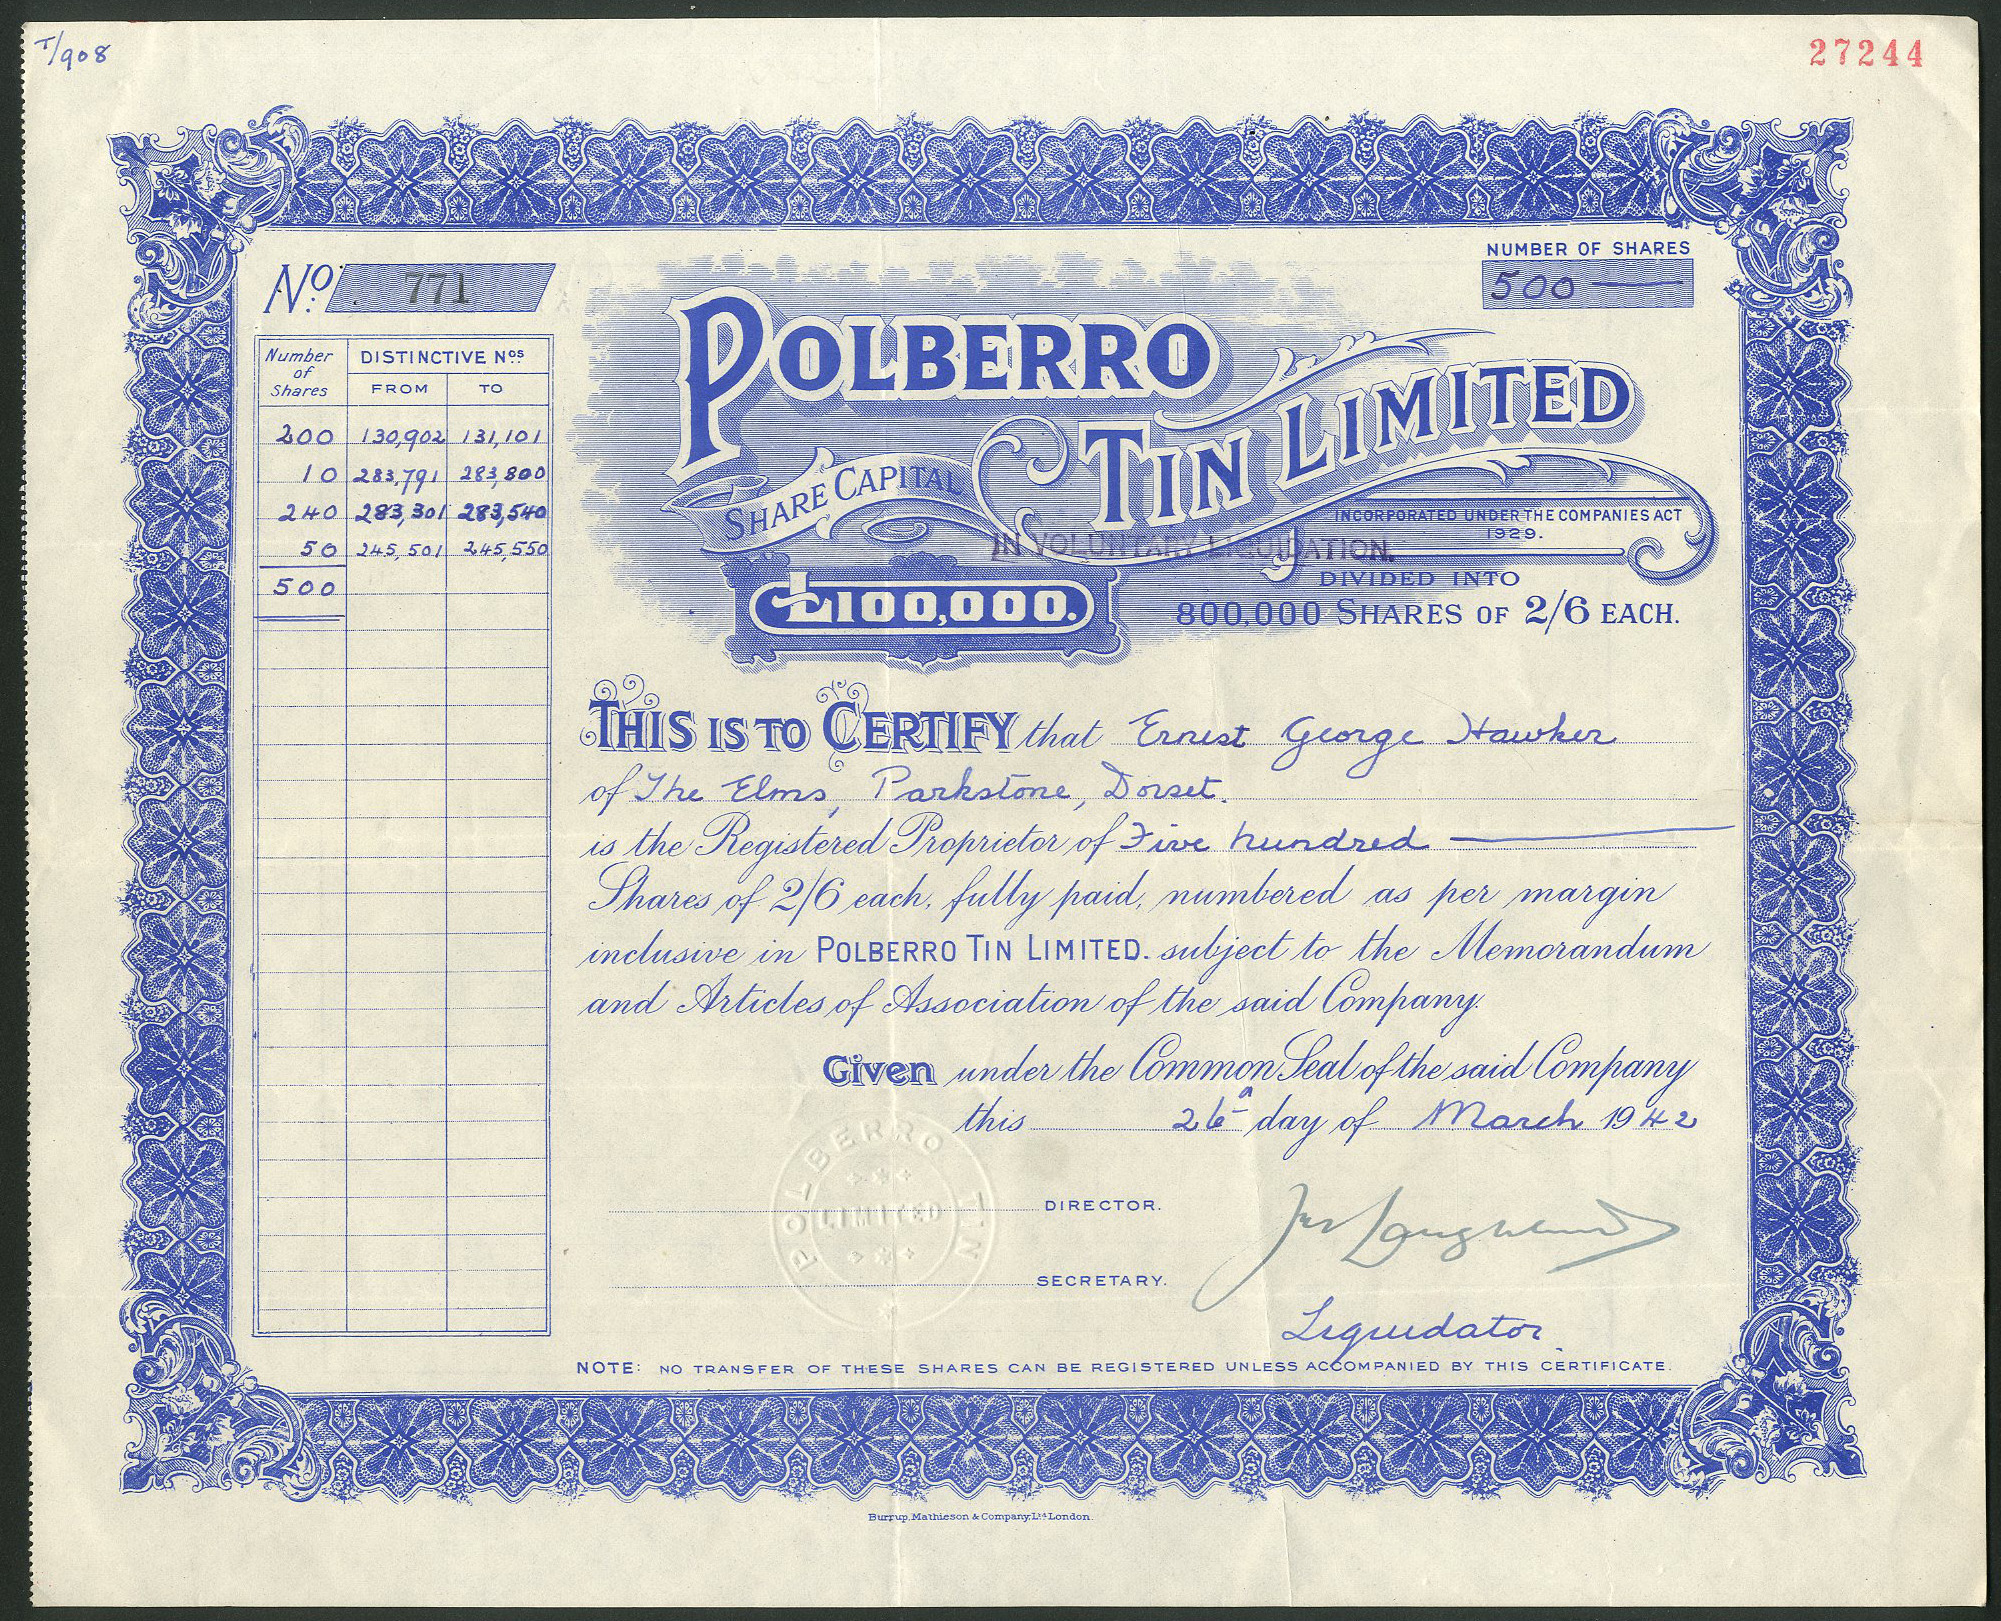 T/908
27244
No. 771
NUMBER OF SHARES
500
Number of Shares DISTINCTIVE Nos.
FROM TO
200 130,902 131,101
10 283,791 283,800
240 283,301 283,540
50 245,501 245,550
500
POLBERRO
TIN LIMITED
SHARE CAPITAL
INCORPORATED UNDER THE COMPANIES ACT
1929.
IN VOLUNTARY LIQUIDATION.
£100,000.
DIVIDED INTO
800,000 SHARES OF 2/6 EACH.
THIS IS TO CERTIFY that Ernest George Hawker
of The Elms, Parkstone, Dorset.
is the Registered Proprietor of Five hundred
Shares of 2/6 each, fully paid, numbered as per margin
inclusive in POLBERRO TIN LIMITED. subject to the Memorandum
and Articles of Association of the said Company.
Given under the Common Seal of the said Company
this 26th day of March 1942
POLBERRO TIN
LIMITED
DIRECTOR.
SECRETARY.
Liquidator.
NOTE: NO TRANSFER OF THESE SHARES CAN BE REGISTERED UNLESS ACCOMPANIED BY THIS CERTIFICATE.
Burrup, Mathieson & Company, Ltd London.